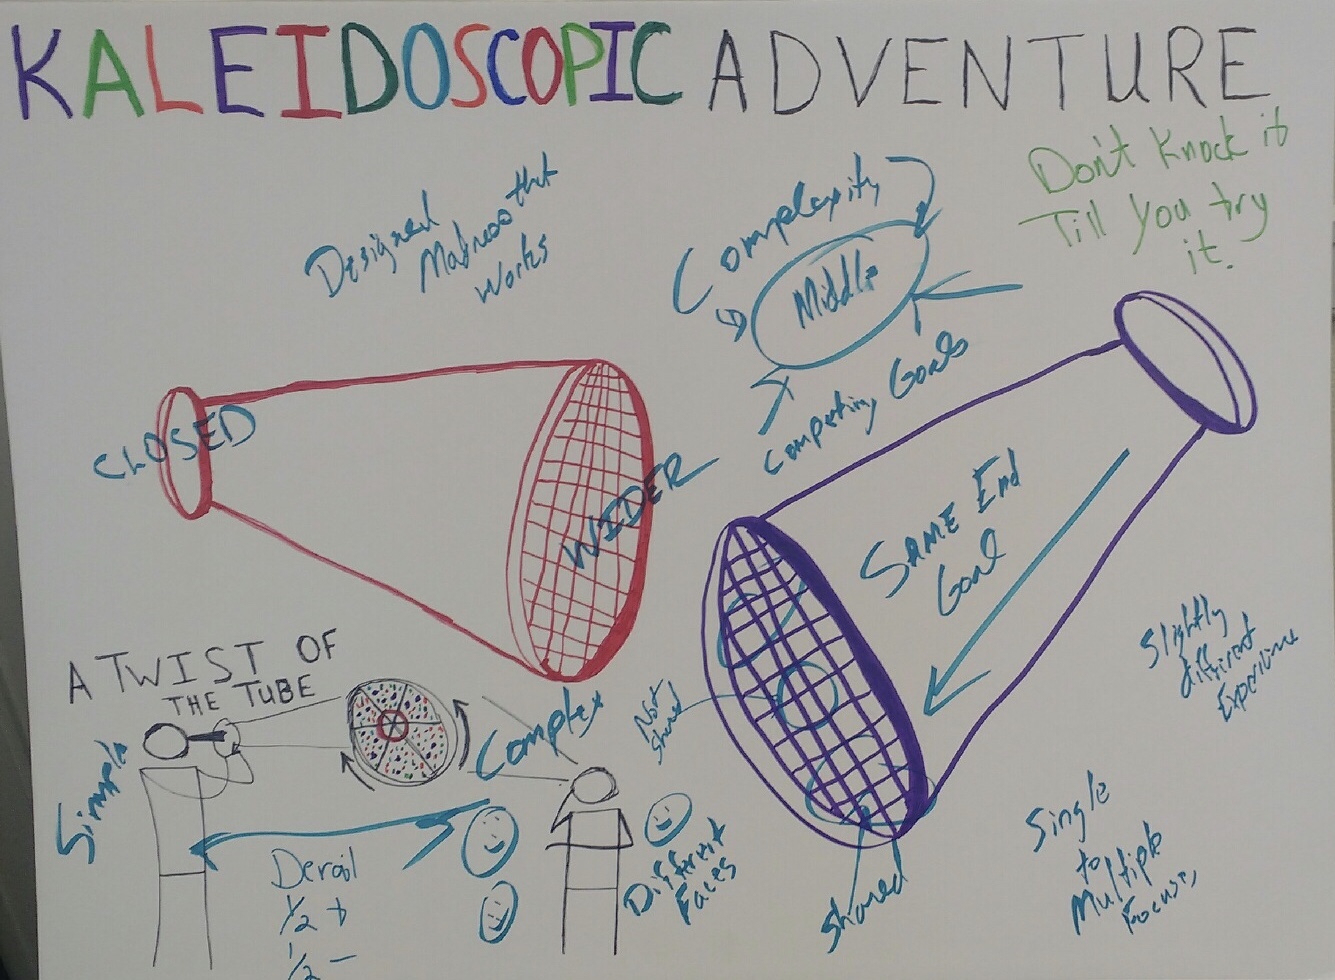 KALEIDOSCOPIC ADVENTURE
Don't Knock it
Till you try
it.
Designed
Madness that
works
Complexity
Middle
Competing Goals
CLOSED
WIDER
SAME End
Goal
Slightly
different
Experience
A TWIST OF
THE TUBE
Simple
Complex
Not
shared
Derail
1/2 +
1/2 -
Different
Faces
Shared
Single
to
Multiple